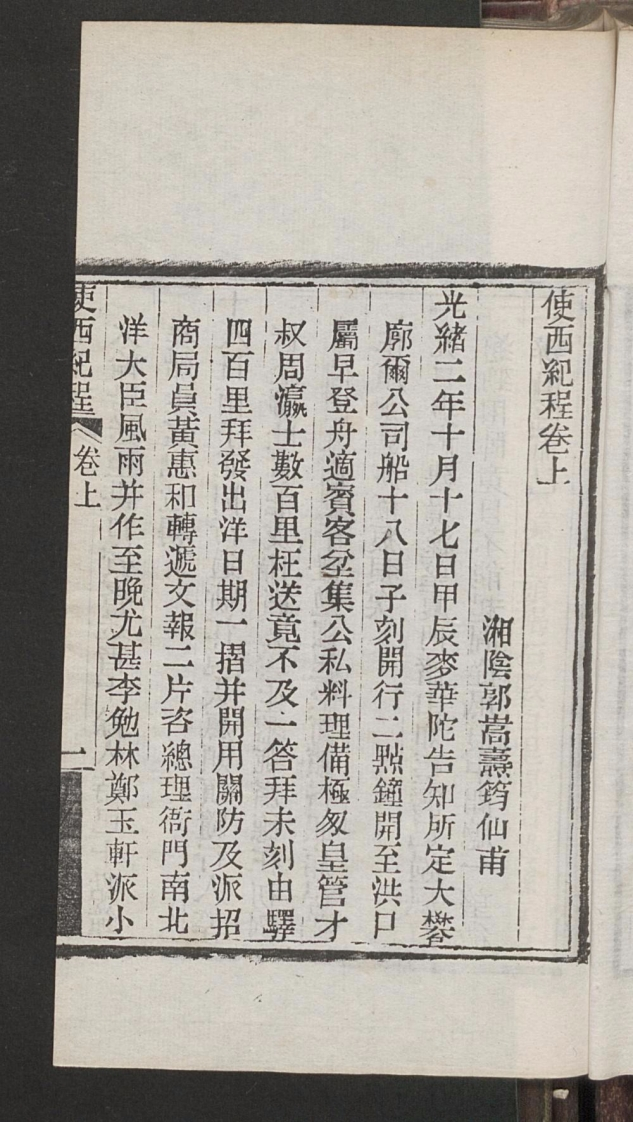 使西紀程卷上
湘陰郭嵩燾筠仙甫
光緒二年十月十七日甲辰麥華陀告知所定大礬
廓爾公司船十八日子刻開行二點鐘開至洪口
屬早登舟適賓客坌集公私料理備極匆皇管才
叔周瀛士數百里枉送竟不及一答拜未刻由驛
四百里拜發出洋日期一摺并開用關防及派招
商局員黃惠和轉遞文報二片咨總理衙門南北
洋大臣風雨并作至晚尤甚李勉林鄭玉軒派小
使西紀程
卷上
一